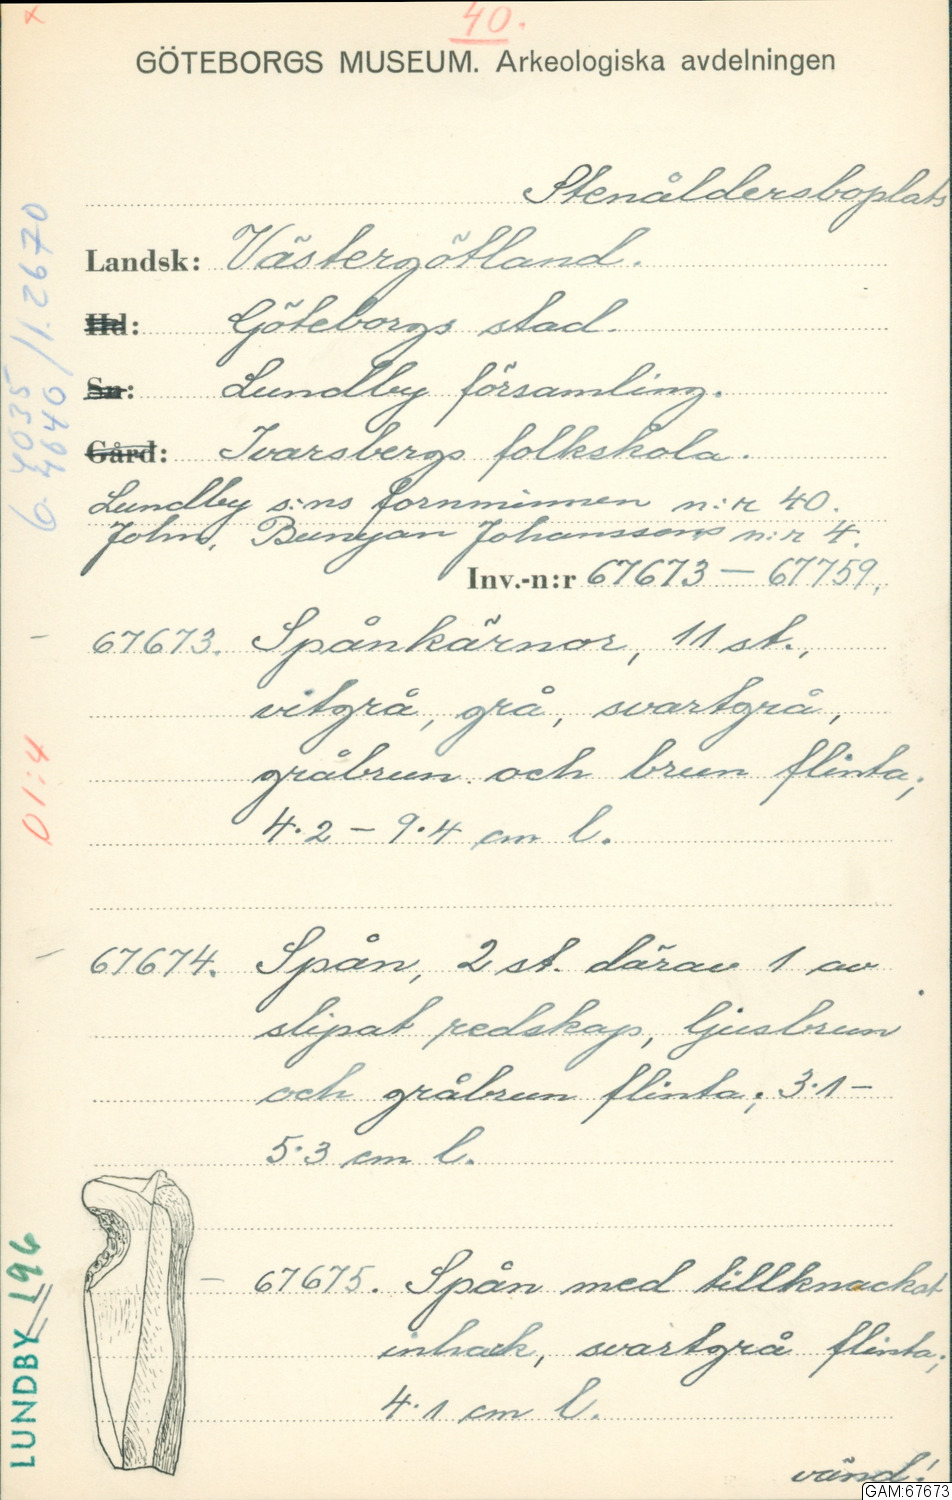 x
40.
GÖTEBORGS MUSEUM. Arkeologiska avdelningen
Stenåldersboplats
Landsk: Västergötland.
Hd: Göteborgs stad.
Sn: Lundby församling.
Gård: Ivarsbergs folkskola.
Lundby s:ns fornminnen n:r 40.
John, Bunyan Johanssons n:r 4.
Inv.-n:r 67673 — 67759.
67673. Spånkärnor, 11 st.,
vitgrå, grå, svartgrå,
gråbrun och brun flinta;
4.2 – 9.4 cm l.
67674. Spån, 2 st. därav 1 av
slipat redskap, ljusbrun
och gråbrun flinta; 3.1 –
5.3 cm l.
67675. Spån med tillknackat
inhack, svartgrå flinta;
4.1 cm l.
vänd!
4035
6. 4040 / 1.2670
01:4
LUNDBY 196
GAM:67673